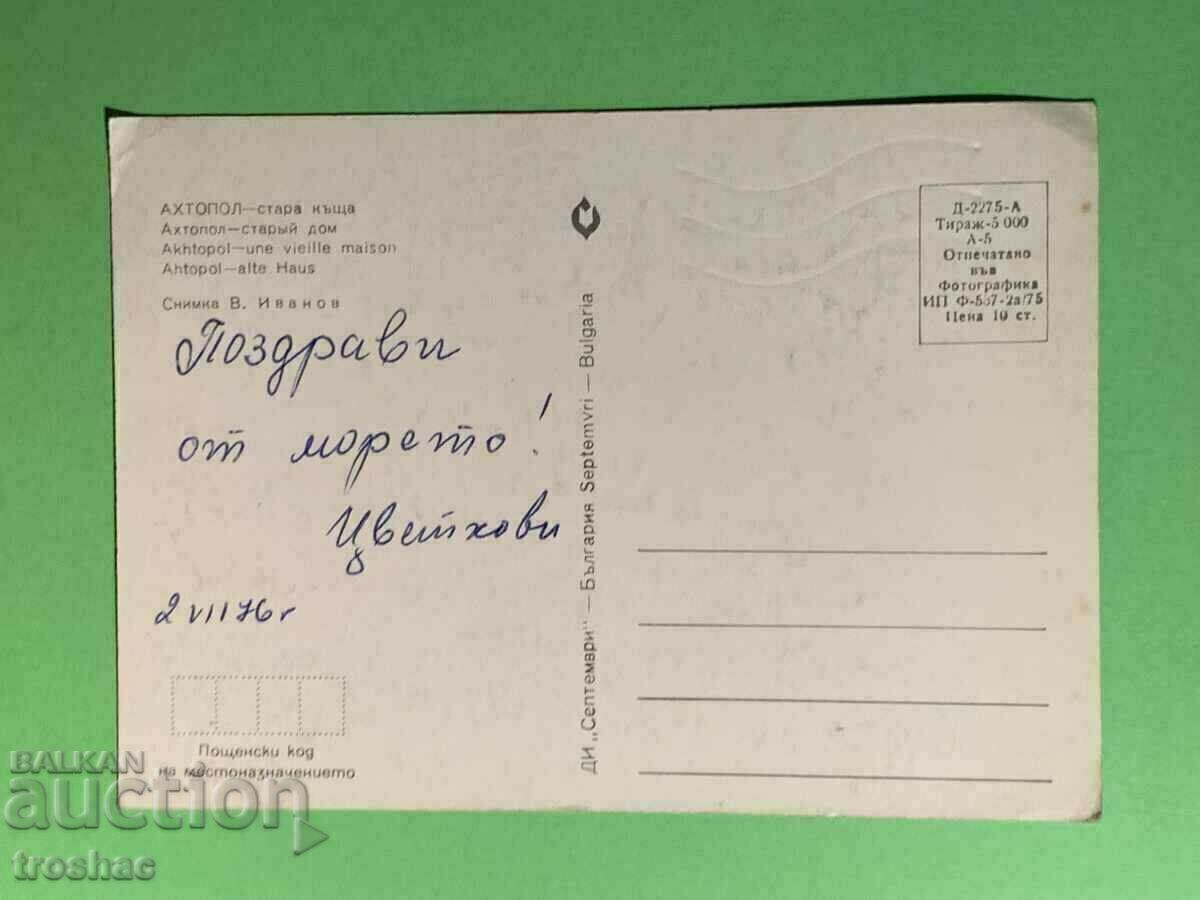 АХТОПОЛ—стара къща
Ахтопол—старый дом
Akhtopol—une vieille maison
Ahtopol—alte Haus
Снимка В. Иванов
Поздрави
от морето!
Цветкови
2 VII 76 г
Пощенски код
на местоназначението
ДИ „Септември" — България Septemvri — Bulgaria
Д-2275-А
Тираж-5 000
А-5
Отпечатано
във
Фотографика
ИП Ф-567-2а/75
Цена 10 ст.
BALKAN
auction
troshac